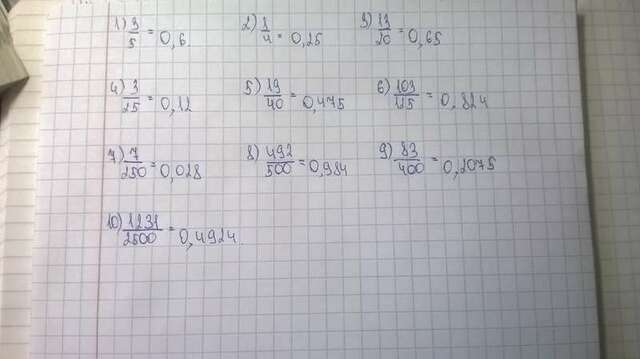 1) 3/5 = 0,6 2) 1/4 = 0,25 3) 13/20 = 0,65
4) 3/25 = 0,12 5) 19/40 = 0,475 6) 103/125 = 0,824
7) 7/250 = 0,028 8) 492/500 = 0,984 9) 83/400 = 0,2075
10) 1231/2500 = 0,4924